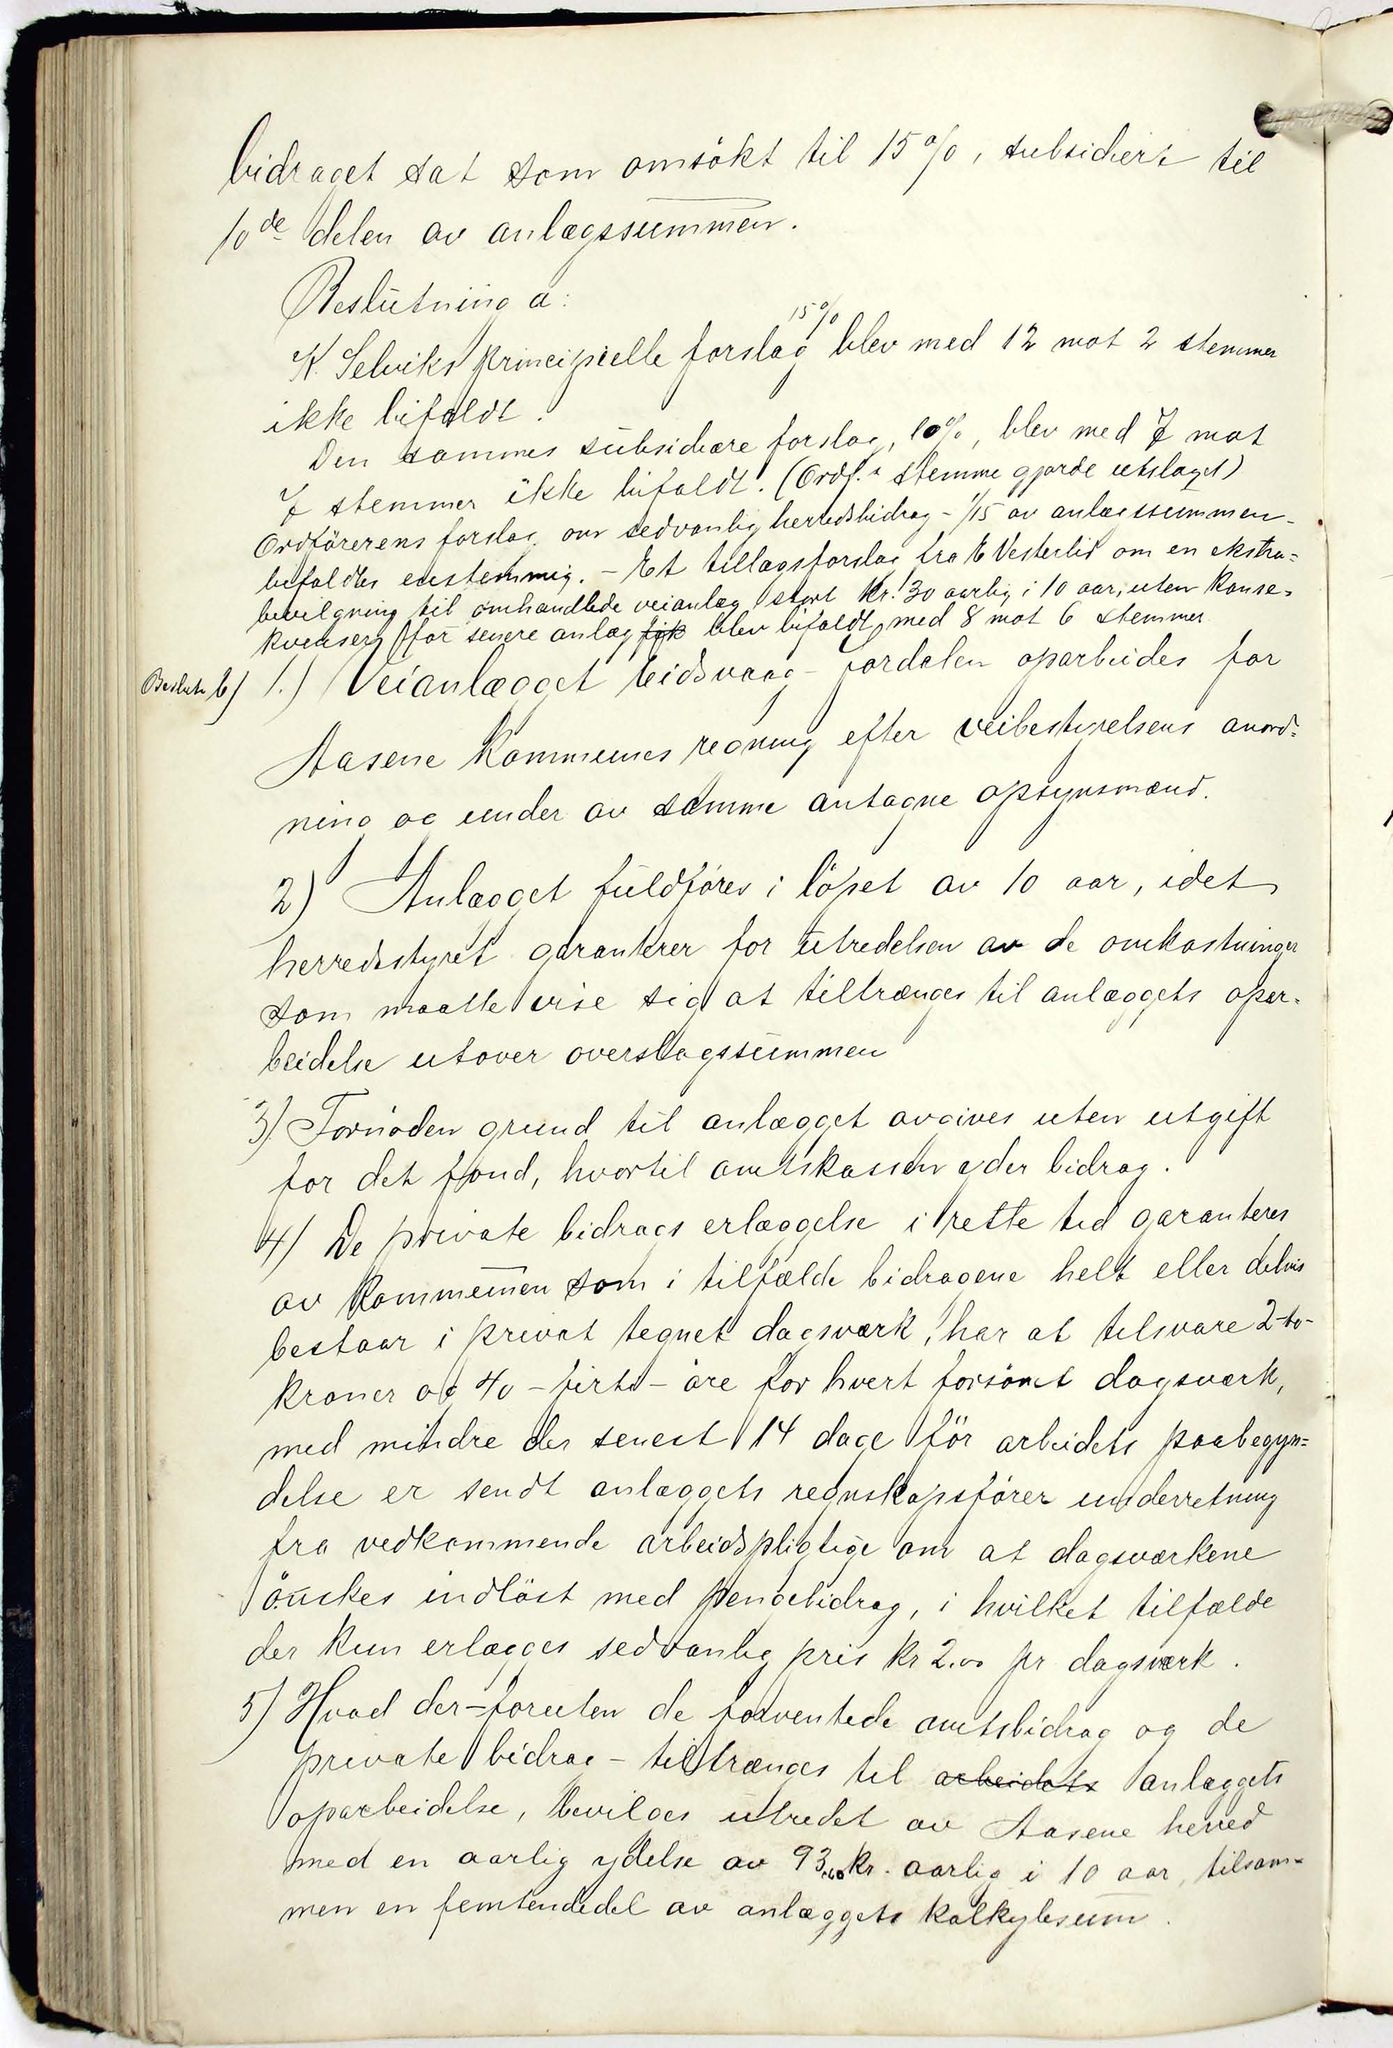 bidraget sat som omsökt til 15%, subsidiert til
10de delen av anlægssummen.
Beslutning a:
15%
K. Selviks principielle forslag blev med 12 mot 2 stemmer
ikke bifaldt.
Den sammes subsidiære forslag, 10%, blev med 7 mot
7 stemmer ikke bifaldt. (Ordf.s stemme gjorde utslaget)
Ordförerens forslag om sedvanlig herredsbidrag - 1/15 av anlægssummen -
bifaldtes enstemmig. - Et tillægsforslag fra E Vesterlid om en ekstra=
bevilgning til omhandlede veianlæg stort kr. 30 aarlig i 10 aar, uten konse-
kvenser for senere anlæg fik blev bifaldt med 8 mot 6 stemmer
Beslutn b) 1.) Veianlægget Eidsvaag - Jordalen oparbeides for
Aasene kommunes regning efter veibestyrelsens anord-
ning og under av samme antagne opsynsmænd.
2) Anlægget fuldföres i löpet av 10 aar, idet
herredsstyret garanterer for utredelsen av de omkostninger
som maatte vise sig at tiltrænges til anlæggets opar-
beidelse utover overslagssummen
3) Fornöden grund til anlægget avgives uten utgift
for det fond, hvortil amtskassen yder bidrag.
4) De private bidrags erlæggelse i rette tid garanteres
av kommunen som i tilfælde bidragene helt eller delvis
bestaar i privat tegnet dagsværk, har at tilsvare 2-to-
kroner og 40 - firti - öre for hvert forsömt dagsværk,
med mindre der senest 14 dage för arbeidets paabegyn=
delse er sendt anlæggets regnskapsförer underretning
fra vedkommende arbeidspligtige om at dagsværkene
önskes indlöst med pengebidrag, i hvilket tilfælde
der kun erlægges sedvanlig pris kr 2.00 pr dagsværk.
5) Hvad der - foruten de forventede amtsbidrag og de
private bidrag - tiltrænges til arbeidets anlæggets
oparbeidelse, bevilges utredet av Aasene herred
med en aarlig ydelse av 93.40 kr. aarlig i 10 aar, tilsam-
men en femtendedel av anlæggets kalkylesum.